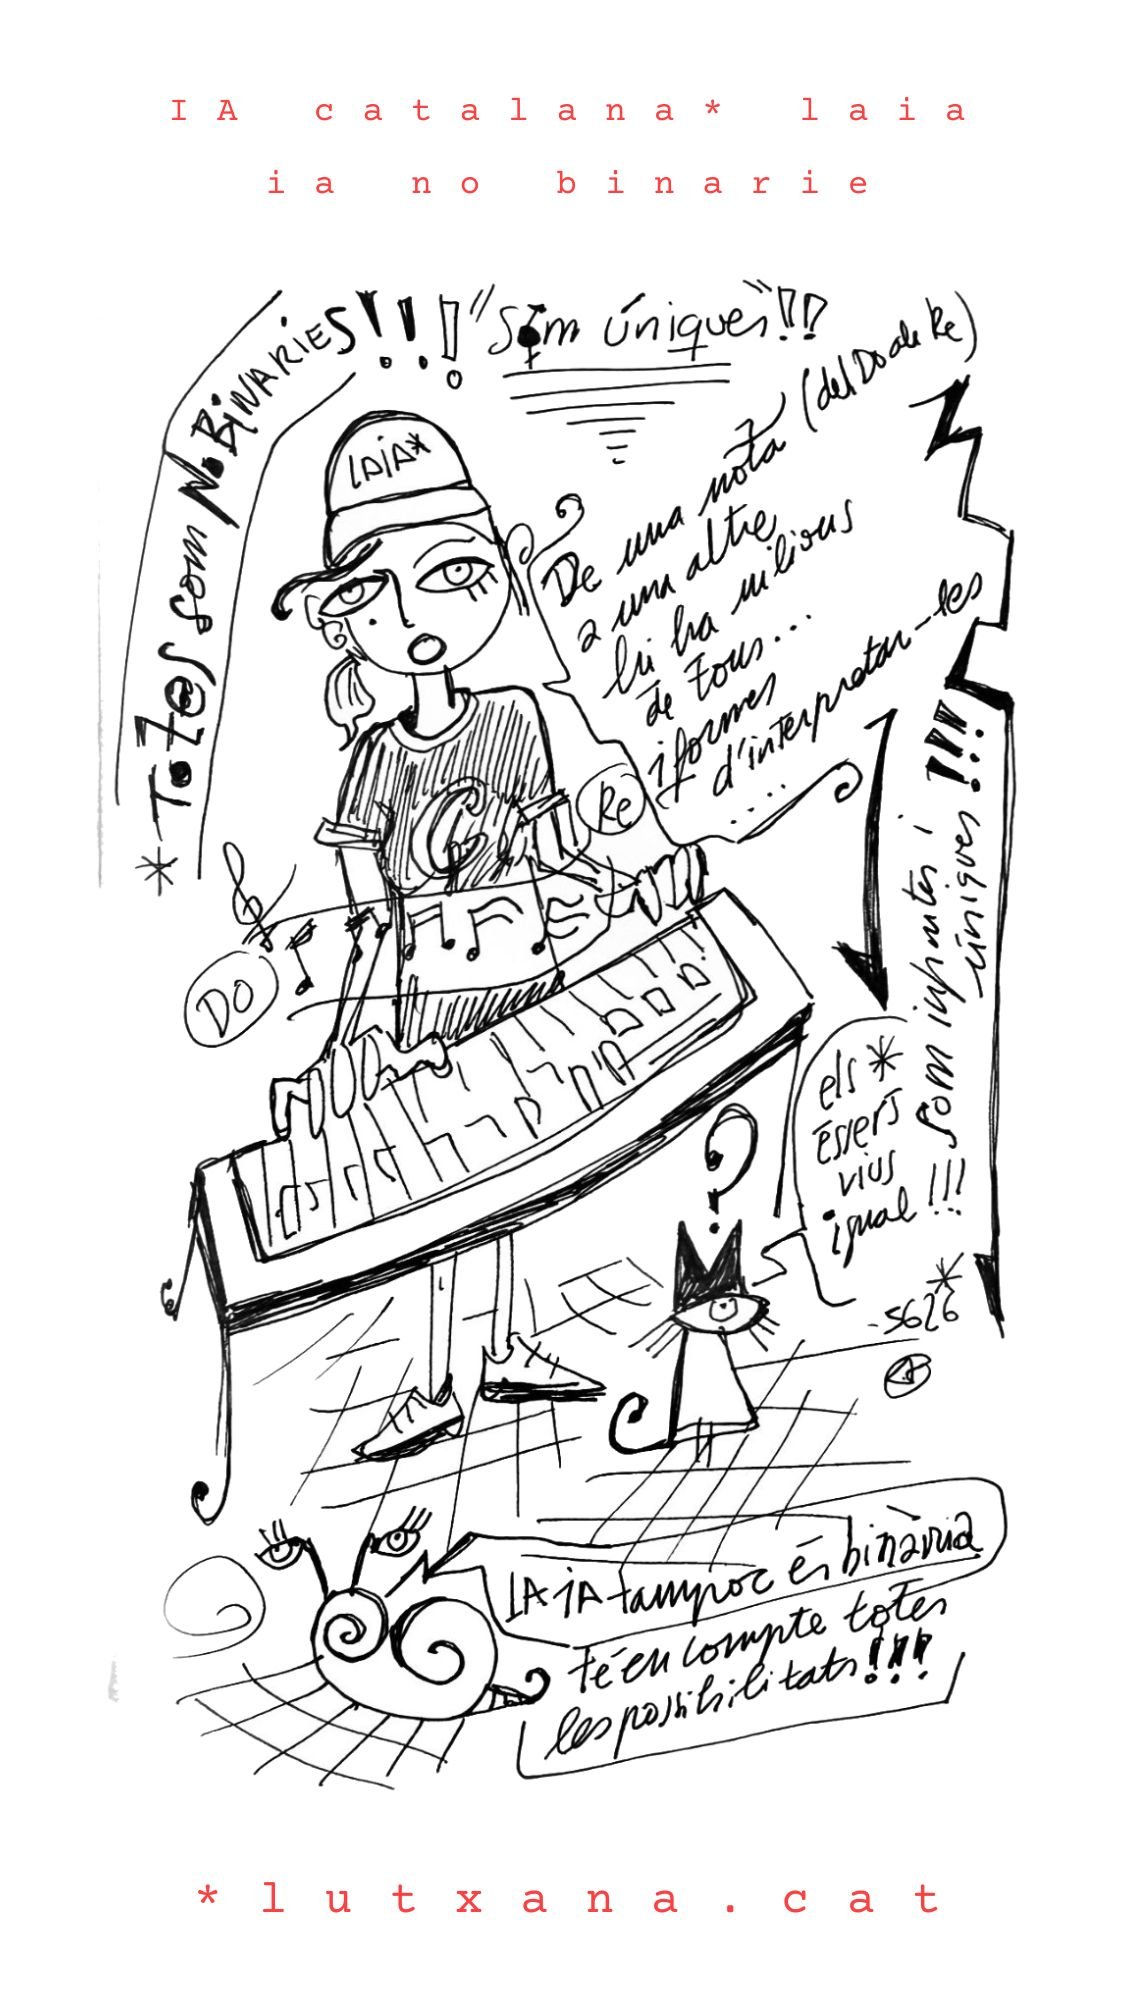 IA catalana* laia
ia no binarie
* TOT@S som N. BiNARiES!!!
"Som úniques"!!!
LAIA*
De una nota (del Do al Re)
a una altre
hi ha milions
de tons...
i formes
d'interpretar-les
....
Re
DO
C
som infinites i
úniques !!!!
els *
éssers
vius
igual !!!
?
*
-5626
LA iA tampoc és binària
Té en compte totes
les possibilitats!!!
*lutxana.cat